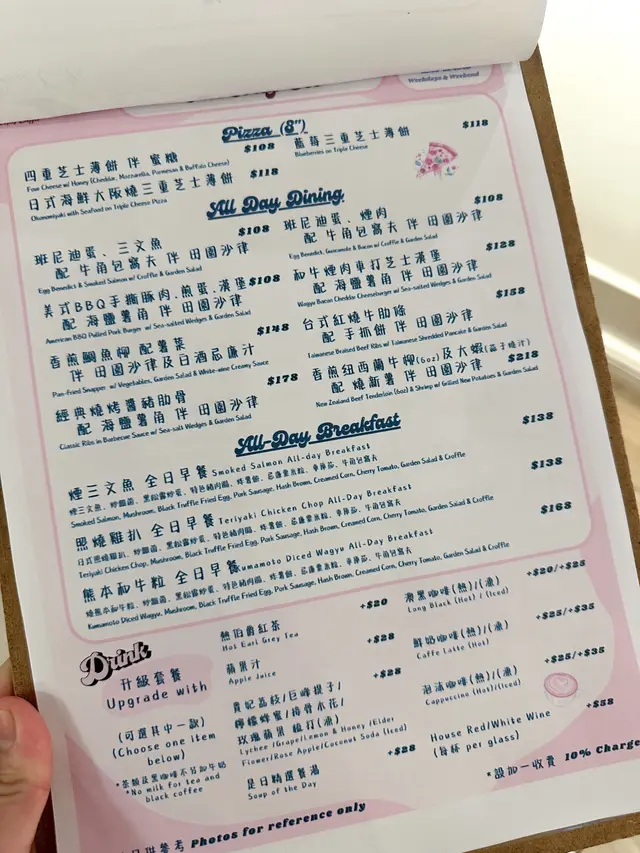 Weekdays & Weekend
Pizza (8")
四重芝士薄餅 伴 蜜糖 $108
Four Cheese w/ Honey (Cheddar, Mozzarella, Parmesan & Buffalo Cheese)
藍莓三重芝士薄餅 $118
Blueberries on Triple Cheese
日式海鮮大阪燒三重芝士薄餅 $118
Okonomiyaki with Seafood on Triple Cheese Pizza
All Day Dining
班尼迪蛋、三文魚 $108
配 牛角包窩夫 伴 田園沙律
Egg Benedict & Smoked Salmon w/ Croffle & Garden Salad
班尼迪蛋、煙肉 $108
配 牛角包窩夫 伴 田園沙律
Egg Benedict, Guacamole & Bacon w/ Croffle & Garden Salad
美式BBQ手撕豚肉.煎蛋.漢堡 $108
配 海鹽薯角 伴 田園沙律
American BBQ Pulled Pork Burger w/ Sea-salted Wedges & Garden Salad
和牛煙肉車打芝士漢堡 $128
配 海鹽薯角 伴 田園沙律
Wagyu Bacon Cheddar Cheeseburger w/ Sea-salted Wedges & Garden Salad
香煎鯛魚柳 配薯菜 $148
伴 田園沙律及白酒忌廉汁
Pan-fried Snapper w/ Vegetables, Garden Salad & White-wine Creamy Sauce
台式紅燒牛肋條 $158
配 手抓餅 伴 田園沙律
Taiwanese Braised Beef Ribs w/ Taiwanese Shredded Pancake & Garden Salad
經典燒烤醬豬肋骨 $178
配 海鹽薯角 伴 田園沙律
Classic Ribs in Barbecue Sauce w/ Sea-salt Wedges & Garden Salad
香煎纽西蘭牛柳(6oz)及大蝦(茄子燒汁) $218
配 燒新薯 伴 田園沙律
New Zealand Beef Tenderloin (6oz) & Shrimp w/ Grilled New Potatoes & Garden Salad
All-Day Breakfast
煙三文魚 全日早餐 Smoked Salmon All-day Breakfast $138
Smoked Salmon, Mushroom, Black Truffle Fried Egg, Pork Sausage, Hash Brown, Creamed Corn, Cherry Tomato, Garden Salad & Croffle
照燒雞扒 全日早餐 Teriyaki Chicken Chop All-Day Breakfast $138
Teriyaki Chicken Chop, Mushroom, Black Truffle Fried Egg, Pork Sausage, Hash Brown, Creamed Corn, Cherry Tomato, Garden Salad & Croffle
熊本和牛粒 全日早餐 Kumamoto Diced Wagyu All-Day Breakfast $168
Kumamoto Diced Wagyu, Mushroom, Black Truffle Fried Egg, Pork Sausage, Hash Brown, Creamed Corn, Cherry Tomato, Garden Salad & Croffle
Drink
升級套餐
Upgrade with
(可選其中一款)
(Choose one item
below)
*茶類及黑咖啡不另加牛奶
*No milk for tea and
black coffee
熱伯爵紅茶 +$20
Hot Earl Grey Tea
蘋果汁 +$28
Apple Juice
貴妃荔枝/巨峰提子/ +$28
檸檬蜂蜜/接骨木花/
玫瑰蘋果 梳打(凍)
Lychee /Grape/Lemon & Honey /Elder
Flower/Rose Apple/Coconut Soda (Iced)
是日精選餐湯 +$28
Soup of the Day
澳黑咖啡(熱)/(凍) +$20/+$25
Long Black (Hot) / (Iced)
鮮奶咖啡(熱)/(凍) +$25/+$35
Caffe Latte (Hot)
泡沫咖啡(熱)/(凍) +$25/+$35
Cappuccino (Hot)/(Iced)
House Red/White Wine +$58
(每杯 per glass)
供參考 Photos for reference only
*設加一收費 10% Charge